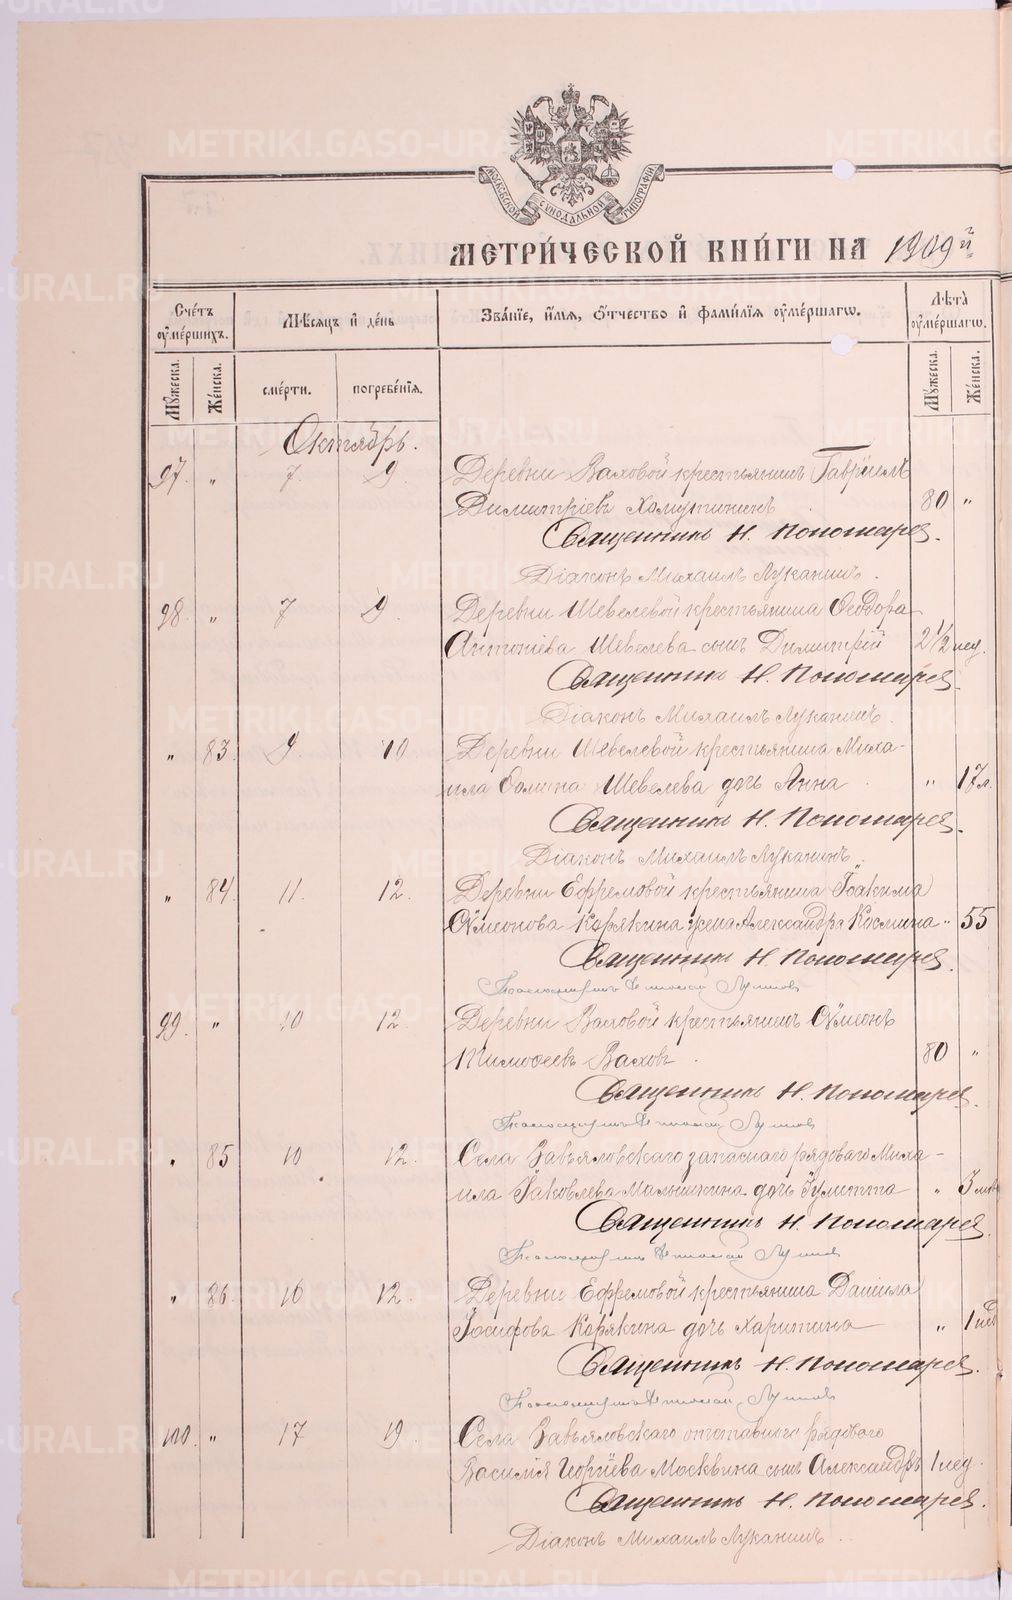 МОСКОВСКОЙ СѴНОДАЛЬНОЙ ТИПОГРАФІИ
МЕТРИ́ЧЕСКОЙ КНИ́ГИ НА 1909 й
Сче́тъ ᲂумершихъ.
Мѣсяцъ и де́нь
Зва́нїе, и́мѧ, ѻтчество и фами́лїѧ ᲂуме́ршагѡ.
Лѣта̀ ᲂуме́ршагѡ.
Мужеска.
Женска.
сме́рти.
погребе́нїѧ.
Мужеска.
Женска.
Октябрь.
97. " 7. 9. Деревни Ваховой крестьянинъ Гавріилъ
Димитріевъ Хомутининъ 80 "
Священникъ Н. Пономарев.
Діаконъ Михаилъ Луканинъ.
98. " 7 9. Деревни Шевелевой крестьянина Ѳеодора
Антоніева Шевелева сынъ Димитрій 2 1/2 нед.
Священникъ Н. Пономарев.
Діаконъ Михаилъ Луканинъ.
" 83. 9. 10 Деревни Шевелевой крестьянина Миха-
ила Ѳомина Шевелева дочь Анна " 17 л.
Священникъ Н. Пономарев.
Діаконъ Михаилъ Луканинъ.
" 84. 11. 12. Деревни Ефремовой крестьянина Іоакима
Сѵмеонова Корякина жена Александра Космина " 55
Священникъ Н. Пономарев.
Псаломщикъ
99. " 10 12. Деревни Ваховой крестьянинъ Сѵмеонъ
Тимоѳеевъ Вахов. 80 "
Священникъ Н. Пономарев.
Псаломщикъ
" 85 10 12. Села Завьяловскаго запаснаго рядоваго Миха-
ила Іаковлева дочь Іулитта " 3
Священникъ Н. Пономарев.
Псаломщикъ
" 86. 10 12. Деревни Ефремовой крестьянина Даніила
Іосифова Корякина дочь Харитина " 1 нед
Священникъ Н. Пономарев.
Псаломщикъ
100. " 17 19. Села Завьяловскаго отставного рядового
Василія Георгіева Москвина сынъ Александръ 1 нед.
Священникъ Н. Пономарев.
Діаконъ Михаилъ Луканинъ.
METRIKI.GASO-URAL.RU